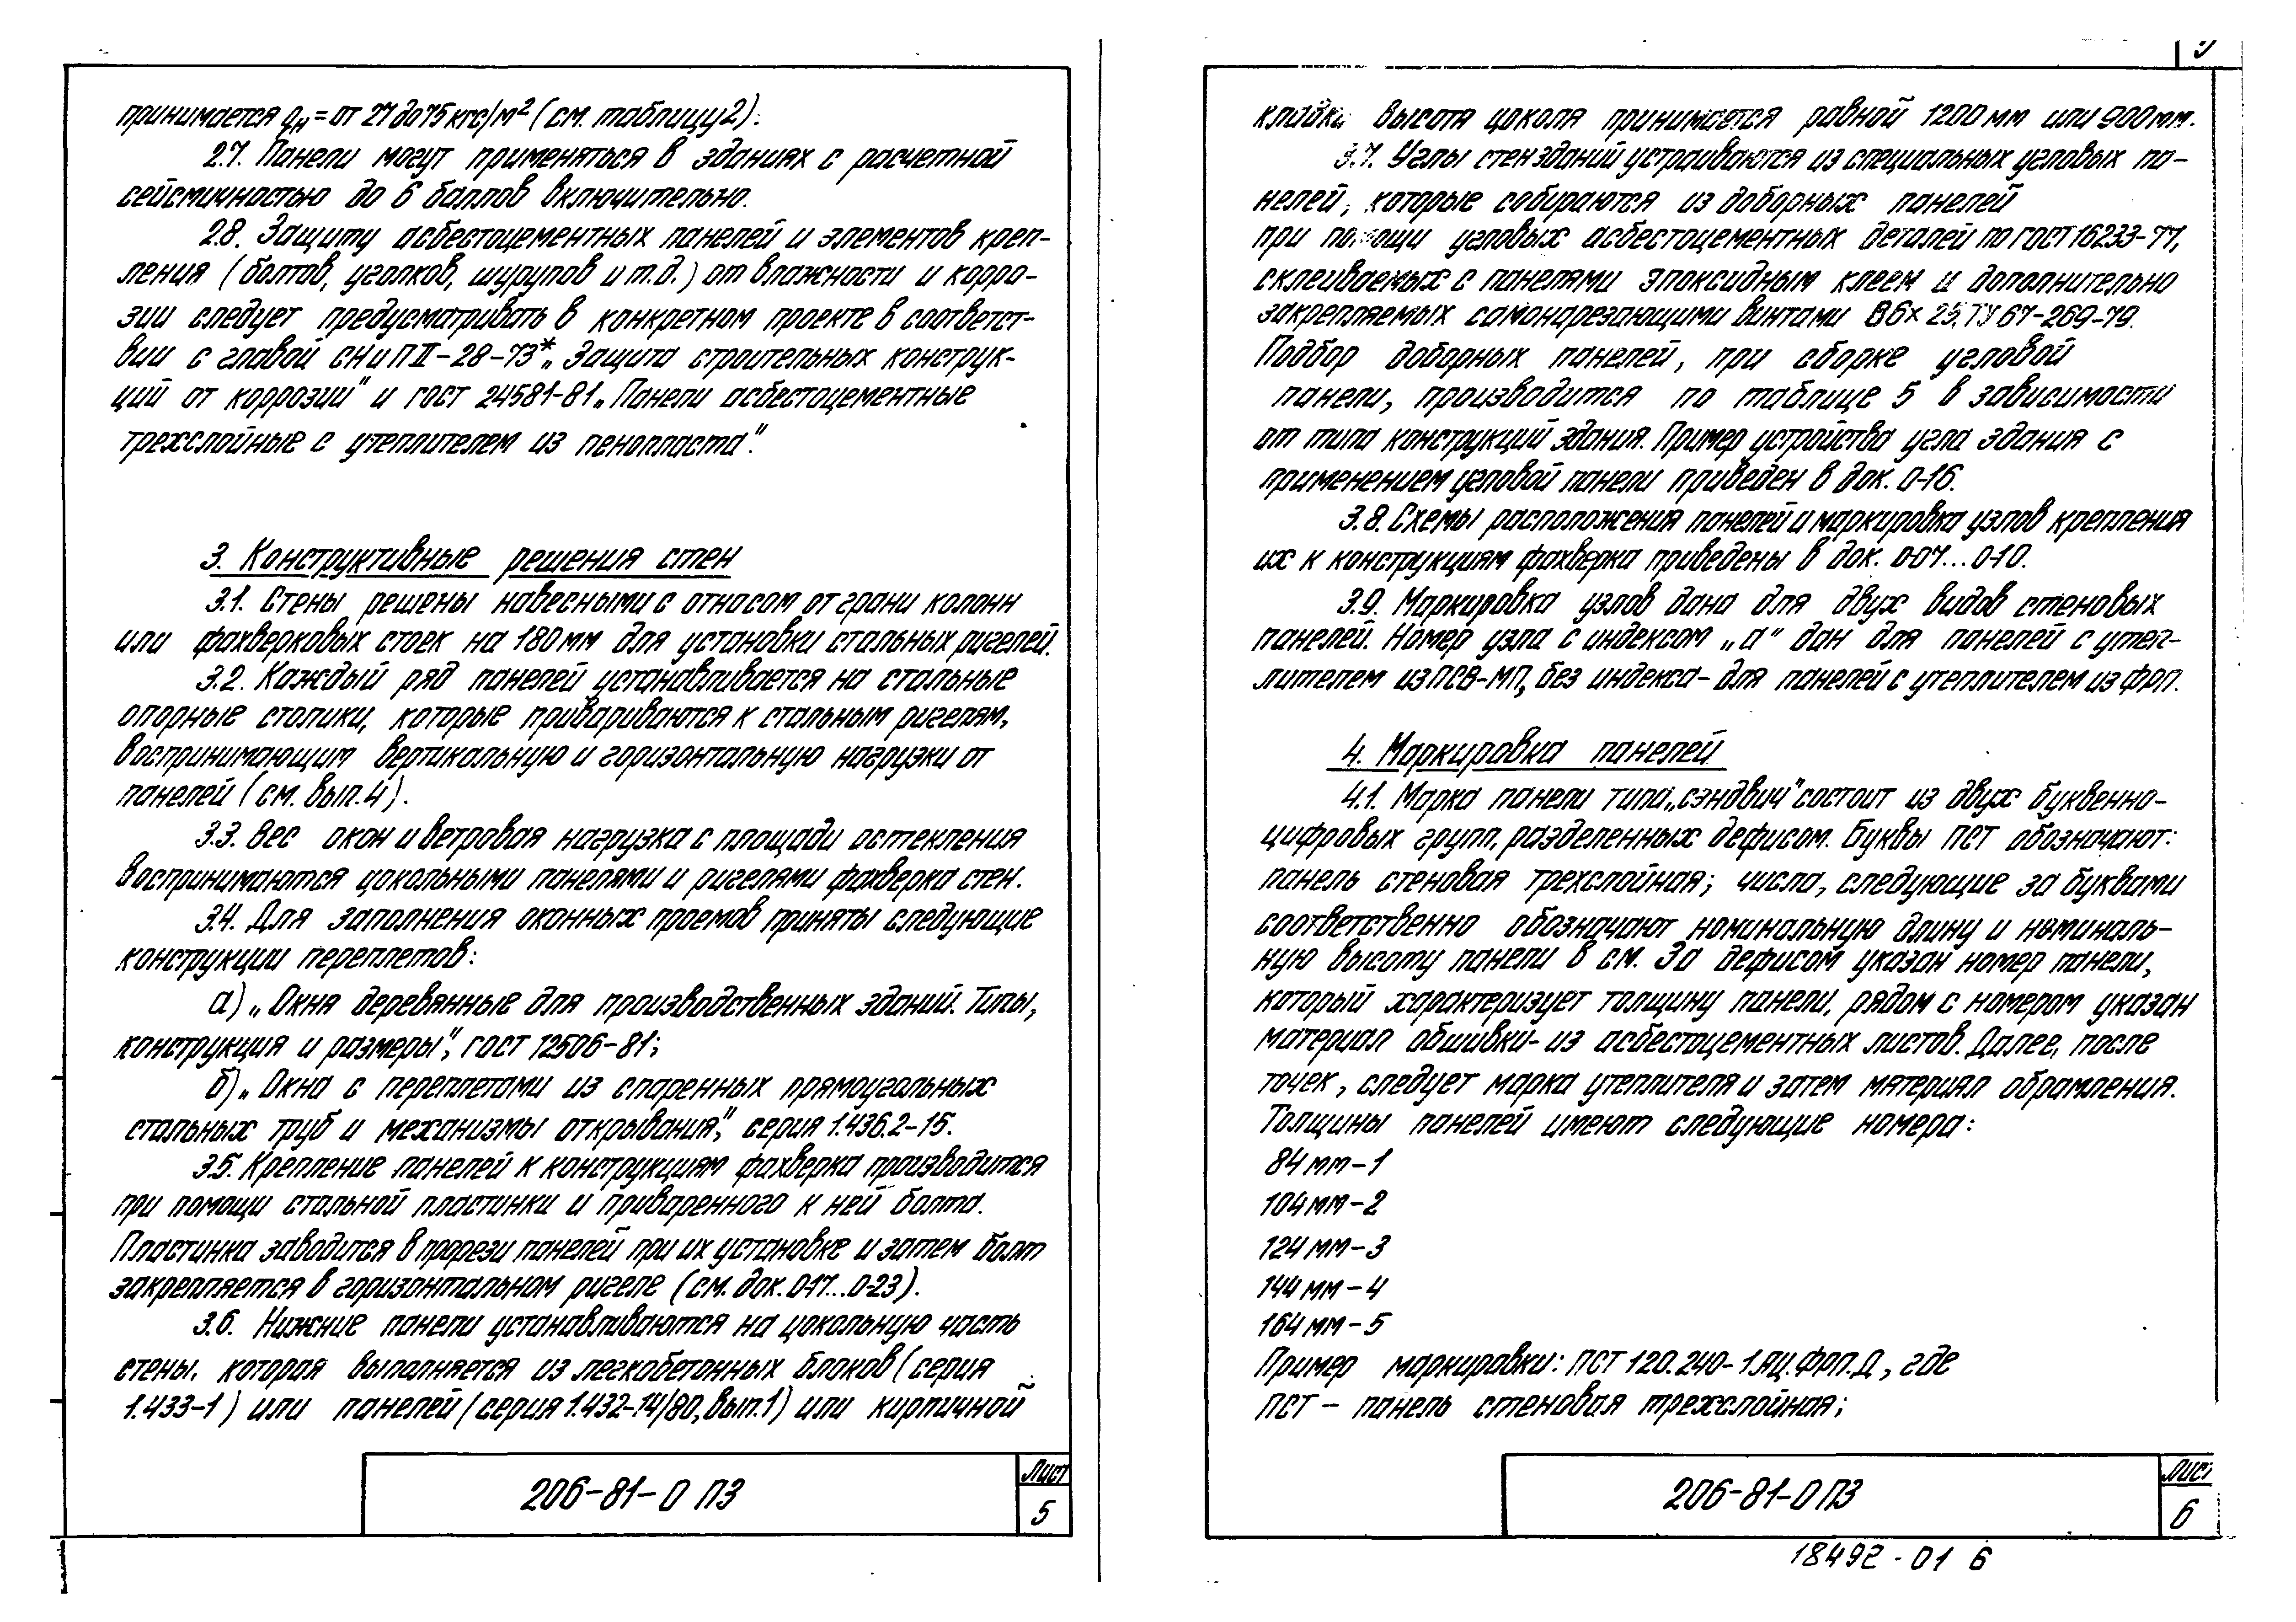 принимается qн = от 27 до 75 кгс/м² (см. таблицу 2).
2.7. Панели могут применяться в зданиях с расчетной
сейсмичностью до 6 баллов включительно.
2.8. Защиту асбестоцементных панелей и элементов креп-
ления (болтов, уголков, шурупов и т.д.) от влажности и корро-
зии следует предусматривать в конкретном проекте в соответст-
вии с главой СНиП II-28-73* „Защита строительных конструк-
ций от коррозии" и ГОСТ 24581-81 „Панели асбестоцементные
трехслойные с утеплителем из пенопласта".
3. Конструктивные решения стен
3.1. Стены решены навесными с относом от грани колонн
или фахверковых стоек на 180 мм для установки стальных ригелей.
3.2. Каждый ряд панелей устанавливается на стальные
опорные столики, которые привариваются к стальным ригелям,
воспринимающим вертикальную и горизонтальную нагрузки от
панелей (см. вып. 4).
3.3. Вес окон и ветровая нагрузка с площади остекления
воспринимаются цокольными панелями и ригелями фахверка стен.
3.4. Для заполнения оконных проемов приняты следующие
конструкции переплетов:
а) „Окна деревянные для производственных зданий. Типы,
конструкция и размеры", ГОСТ 12506-81;
б) „Окна с переплетами из спаренных прямоугольных
стальных труб и механизмы открывания", серия 1.436.2-15.
3.5. Крепление панелей к конструкциям фахверка производится
при помощи стальной пластинки и приваренного к ней болта.
Пластинка заводится в прорези панелей при их установке и затем болт
закрепляется в горизонтальном ригеле (см. док. 0-17...0-23).
3.6. Нижние панели устанавливаются на цокольную часть
стены, которая выполняется из легкобетонных блоков (серия
1.433-1) или панелей (серия 1.432-14/80, вып. 1) или кирпичной
206-81-0 ПЗ
Лист
5
кладки. Высота цоколя принимается равной 1200 мм или 900 мм.
3.7. Углы стен зданий устраиваются из специальных угловых па-
нелей, которые собираются из доборных панелей
при помощи угловых асбестоцементных деталей по ГОСТ 16233-77,
склеиваемых с панелями эпоксидным клеем и дополнительно
закрепляемых самонарезающими винтами В6×25, ТУ 67-269-79.
Подбор доборных панелей, при сборке угловой
панели, производится по таблице 5 в зависимости
от типа конструкций здания. Пример устройства угла здания с
применением угловой панели приведен в док. 0-16.
3.8. Схемы расположения панелей и маркировка узлов крепления
их к конструкциям фахверка приведены в док. 0-07...0-10.
3.9. Маркировка узлов дана для двух видов стеновых
панелей. Номер узла с индексом „а" дан для панелей с утеп-
лителем из ПСВ-МП, без индекса - для панелей с утеплителем из ФРП.
4. Маркировка панелей
4.1. Марка панели типа „сэндвич" состоит из двух буквенно-
цифровых групп, разделенных дефисом. Буквы ПСТ обозначают:
панель стеновая трехслойная; числа, следующие за буквами
соответственно обозначают номинальную длину и номиналь-
ную высоту панели в см. За дефисом указан номер панели,
который характеризует толщину панели, рядом с номером указан
материал обшивки - из асбестоцементных листов. Далее, после
точек, следует марка утеплителя и затем материал обрамления.
Толщины панелей имеют следующие номера:
84 мм - 1
104 мм - 2
124 мм - 3
144 мм - 4
164 мм - 5
Пример маркировки: ПСТ 120.240-1.АЦ.ФРП.Д, где
ПСТ - панель стеновая трехслойная;
206-81-0 ПЗ
Лист
6
18492-01 6